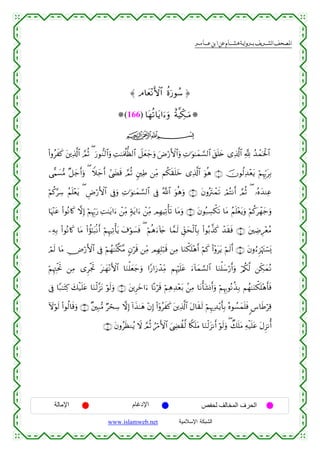 المصحف الشريف برواية هشام عن ابن عامر
﴿ سُورَةُ ٱلْأَنْعَامِ ﴾
*مَكِّيَّةٌ وَءَايَاتُهَا (166)*
بِسْمِ ٱللَّهِ ٱلرَّحْمَٰنِ ٱلرَّحِيمِ
ٱلْحَمْدُ لِلَّهِ ٱلَّذِى خَلَقَ ٱلسَّمَٰوَٰتِ وَٱلْأَرْضَ وَجَعَلَ ٱلظُّلُمَٰتِ وَٱلنُّورَ ۖ ثُمَّ ٱلَّذِينَ كَفَرُوا۟
بِرَبِّهِمْ يَعْدِلُونَ ۝ هُوَ ٱلَّذِى خَلَقَكُم مِّن طِينٍ ثُمَّ قَضَىٰٓ أَجَلًا ۖ وَأَجَلٌ مُّسَمًّى
عِندَهُۥ ۖ ثُمَّ أَنتُمْ تَمْتَرُونَ ۝ وَهُوَ ٱللَّهُ فِى ٱلسَّمَٰوَٰتِ وَفِى ٱلْأَرْضِ ۖ يَعْلَمُ سِرَّكُمْ
وَجَهْرَكُمْ وَيَعْلَمُ مَا تَكْسِبُونَ ۝ وَمَا تَأْتِيهِم مِّنْ ءَايَةٍ مِّنْ ءَايَٰتِ رَبِّهِمْ إِلَّا كَانُوا۟ عَنْهَا
مُعْرِضِينَ ۝ فَقَدْ كَذَّبُوا۟ بِٱلْحَقِّ لَمَّا جَآءَهُمْ ۖ فَسَوْفَ يَأْتِيهِمْ أَنۢبَٰٓؤُا۟ مَا كَانُوا۟ بِهِۦ
يَسْتَهْزِءُونَ ۝ أَلَمْ يَرَوْا۟ كَمْ أَهْلَكْنَا مِن قَبْلِهِم مِّن قَرْنٍ مَّكَّنَّٰهُمْ فِى ٱلْأَرْضِ مَا لَمْ
نُمَكِّن لَّكُمْ وَأَرْسَلْنَا ٱلسَّمَآءَ عَلَيْهِم مِّدْرَارًا وَجَعَلْنَا ٱلْأَنْهَٰرَ تَجْرِى مِن تَحْتِهِمْ
فَأَهْلَكْنَٰهُم بِذُنُوبِهِمْ وَأَنشَأْنَا مِنۢ بَعْدِهِمْ قَرْنًا ءَاخَرِينَ ۝ وَلَوْ نَزَّلْنَا عَلَيْكَ كِتَٰبًا فِى
قِرْطَاسٍ فَلَمَسُوهُ بِأَيْدِيهِمْ لَقَالَ ٱلَّذِينَ كَفَرُوٓا۟ إِنْ هَٰذَآ إِلَّا سِحْرٌ مُّبِينٌ ۝ وَقَالُوا۟ لَوْلَآ
أُنزِلَ عَلَيْهِ مَلَكٌ ۖ وَلَوْ أَنزَلْنَا مَلَكًا لَّقُضِىَ ٱلْأَمْرُ ثُمَّ لَا يُنظَرُونَ ۝
الحرف المخالف لحفص
الإدغام
الإمالة
الشبكة الإسلامية
www.islamweb.net